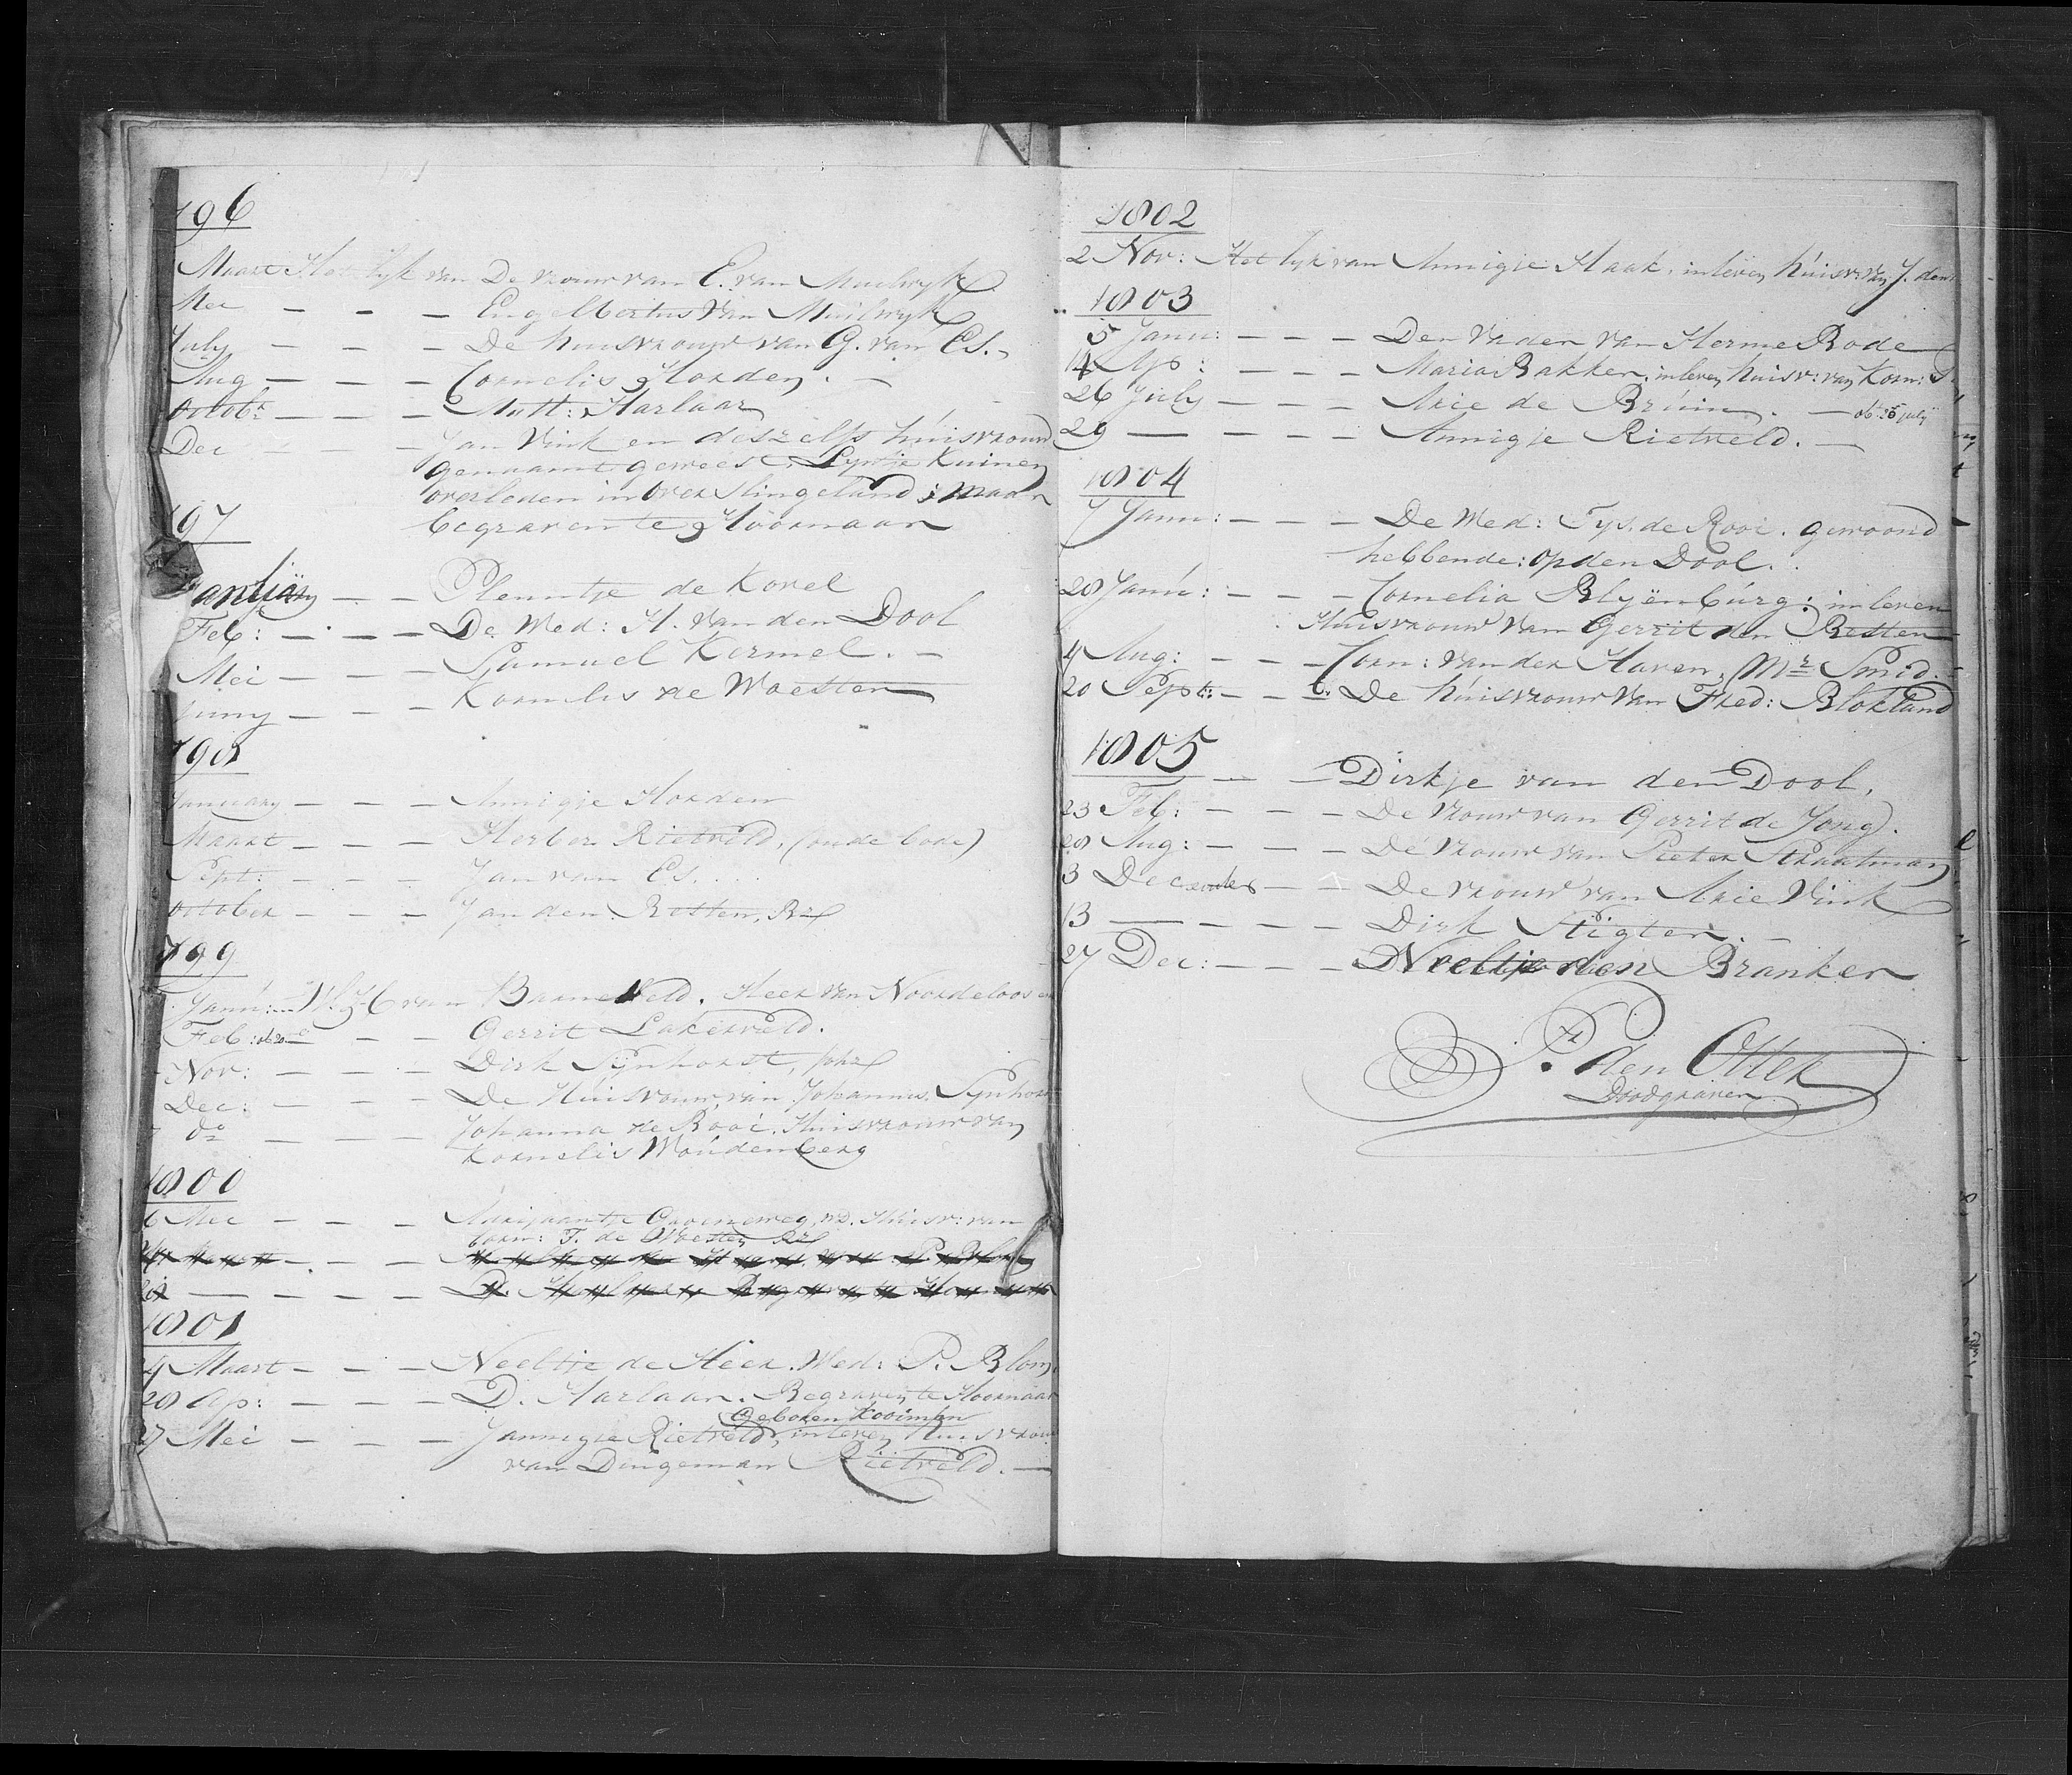 796
Maart Het Lijk van De vrouw van E. van Muilwyk
Mei — — — Engelbertus van Muilwyk
July — — — De huisvrouw van G. van Es.
Aug — — — Cornelis Horden.
Octobr — — — Matt: Harlaar
Dec — — — Jan Vink en deszelfs húisvrouw
genaamt geweest, Lyntje Kuinen
overleden in over Slingeland; maar
begraven te Hoornaar
797
January — — Pleuntje de Kovel
Feb: — — — De Wed: H. van den Dool
Mei — — — Samuel Kermel. —
Juny — — — Kornelis de Woesten
798
January — — — Annigje Horden
Maart — — — Herber Rietveld, (oude bode)
Sept: — — — Jan van Es.
October — — — Jan den Besten,
799
Janú: van Barneveld. Heer van Noordeloos en
Feb: — — Gerrit Lakerveld.
Nov: — — — Dirk Synhorst,
Dec: — — — De Húisvrouw van Johannes Synhorst
do — — — Johanna de Rooi. Huisvrouw van
Kornelis Woúdenberg
1800
6 Mei — — — Groeneweg, Huisv: van
Corn: T. de Woesten
1801
4 Maart — — — Neeltje de Heer. Wed: P. Blom
28 Ap: — — — D. Harlaar. Begraven te Hoornaar
Geboren Kooiman
27 Mei — — — Jannigje Rietveld, in leven Huisvrouw
van Dingeman Rietveld. —
1802
2 Nov: Het lijk van Annigje Haak, in leven húisv: van J. den
1803
5 Janu: — — — Den vader van Herme Rode
14 Ap: — — — Maria Bakker, in leven huisv: van Korn:
26 July — — — Arie de Brúin. — ob: 26 july
29 — — — — Annigje Rietveld. —
1804
7 Janu: — — — De Wed: Tys. de Rooi. gewoond
hebbende: op den Dool.
28 Janú: — — — Cornelia Blyënbúrg: in leven
Huisvrouw van Gerrit den Besten
4 Aug: — — — Corn: van der Haven, Mr Smid.
20 Sept: — — — De húisvrouw van Fred: Blokland
1805
— — Dirkje van den Dool,
23 Feb: — — — De vrouw van Gerrit de Jong.
28 Aug: — — — De vrouw van Pieter Straatman
3 December — — De vrouw van Arie Vink
13 — — — — Dirk Stigter. —
27 Dec: — — — Neeltje den Branker
P. den Otter
Doodgraver